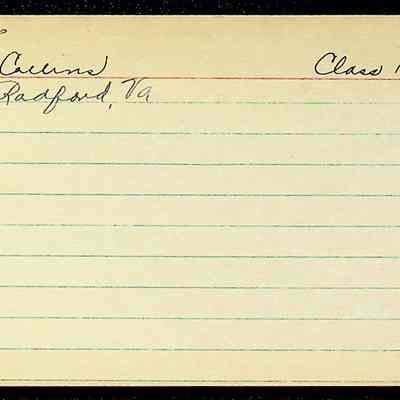 Collins Class
Radford, Va